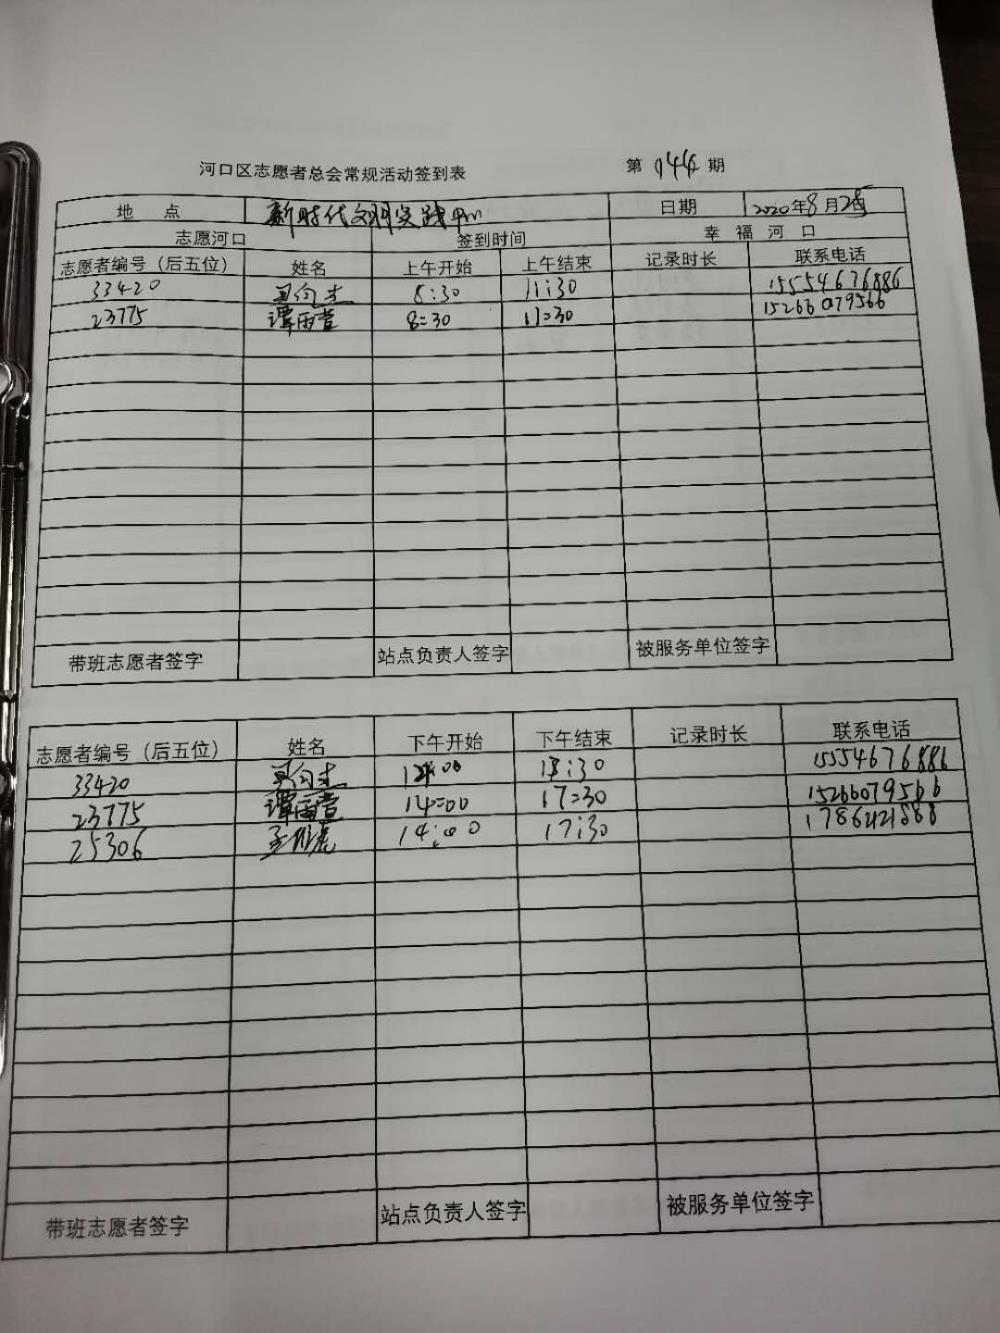 河口区志愿者总会常规活动签到表 第 144 期
地 点 新时代文明实践中心 日期 2020年8月2日
志愿河口 签到时间 幸 福 河 口
志愿者编号（后五位） 姓名 上午开始 上午结束 记录时长 联系电话
33420 8:30 11:30 15554676886
23775 谭雨萱 8:30 11:30 15266079566
带班志愿者签字 站点负责人签字 被服务单位签字
志愿者编号（后五位） 姓名 下午开始 下午结束 记录时长 联系电话
33420 :30 15554676886
23775 谭雨萱 14:00 17:30 15266079566
25306 14:00 17:30
带班志愿者签字 站点负责人签字 被服务单位签字